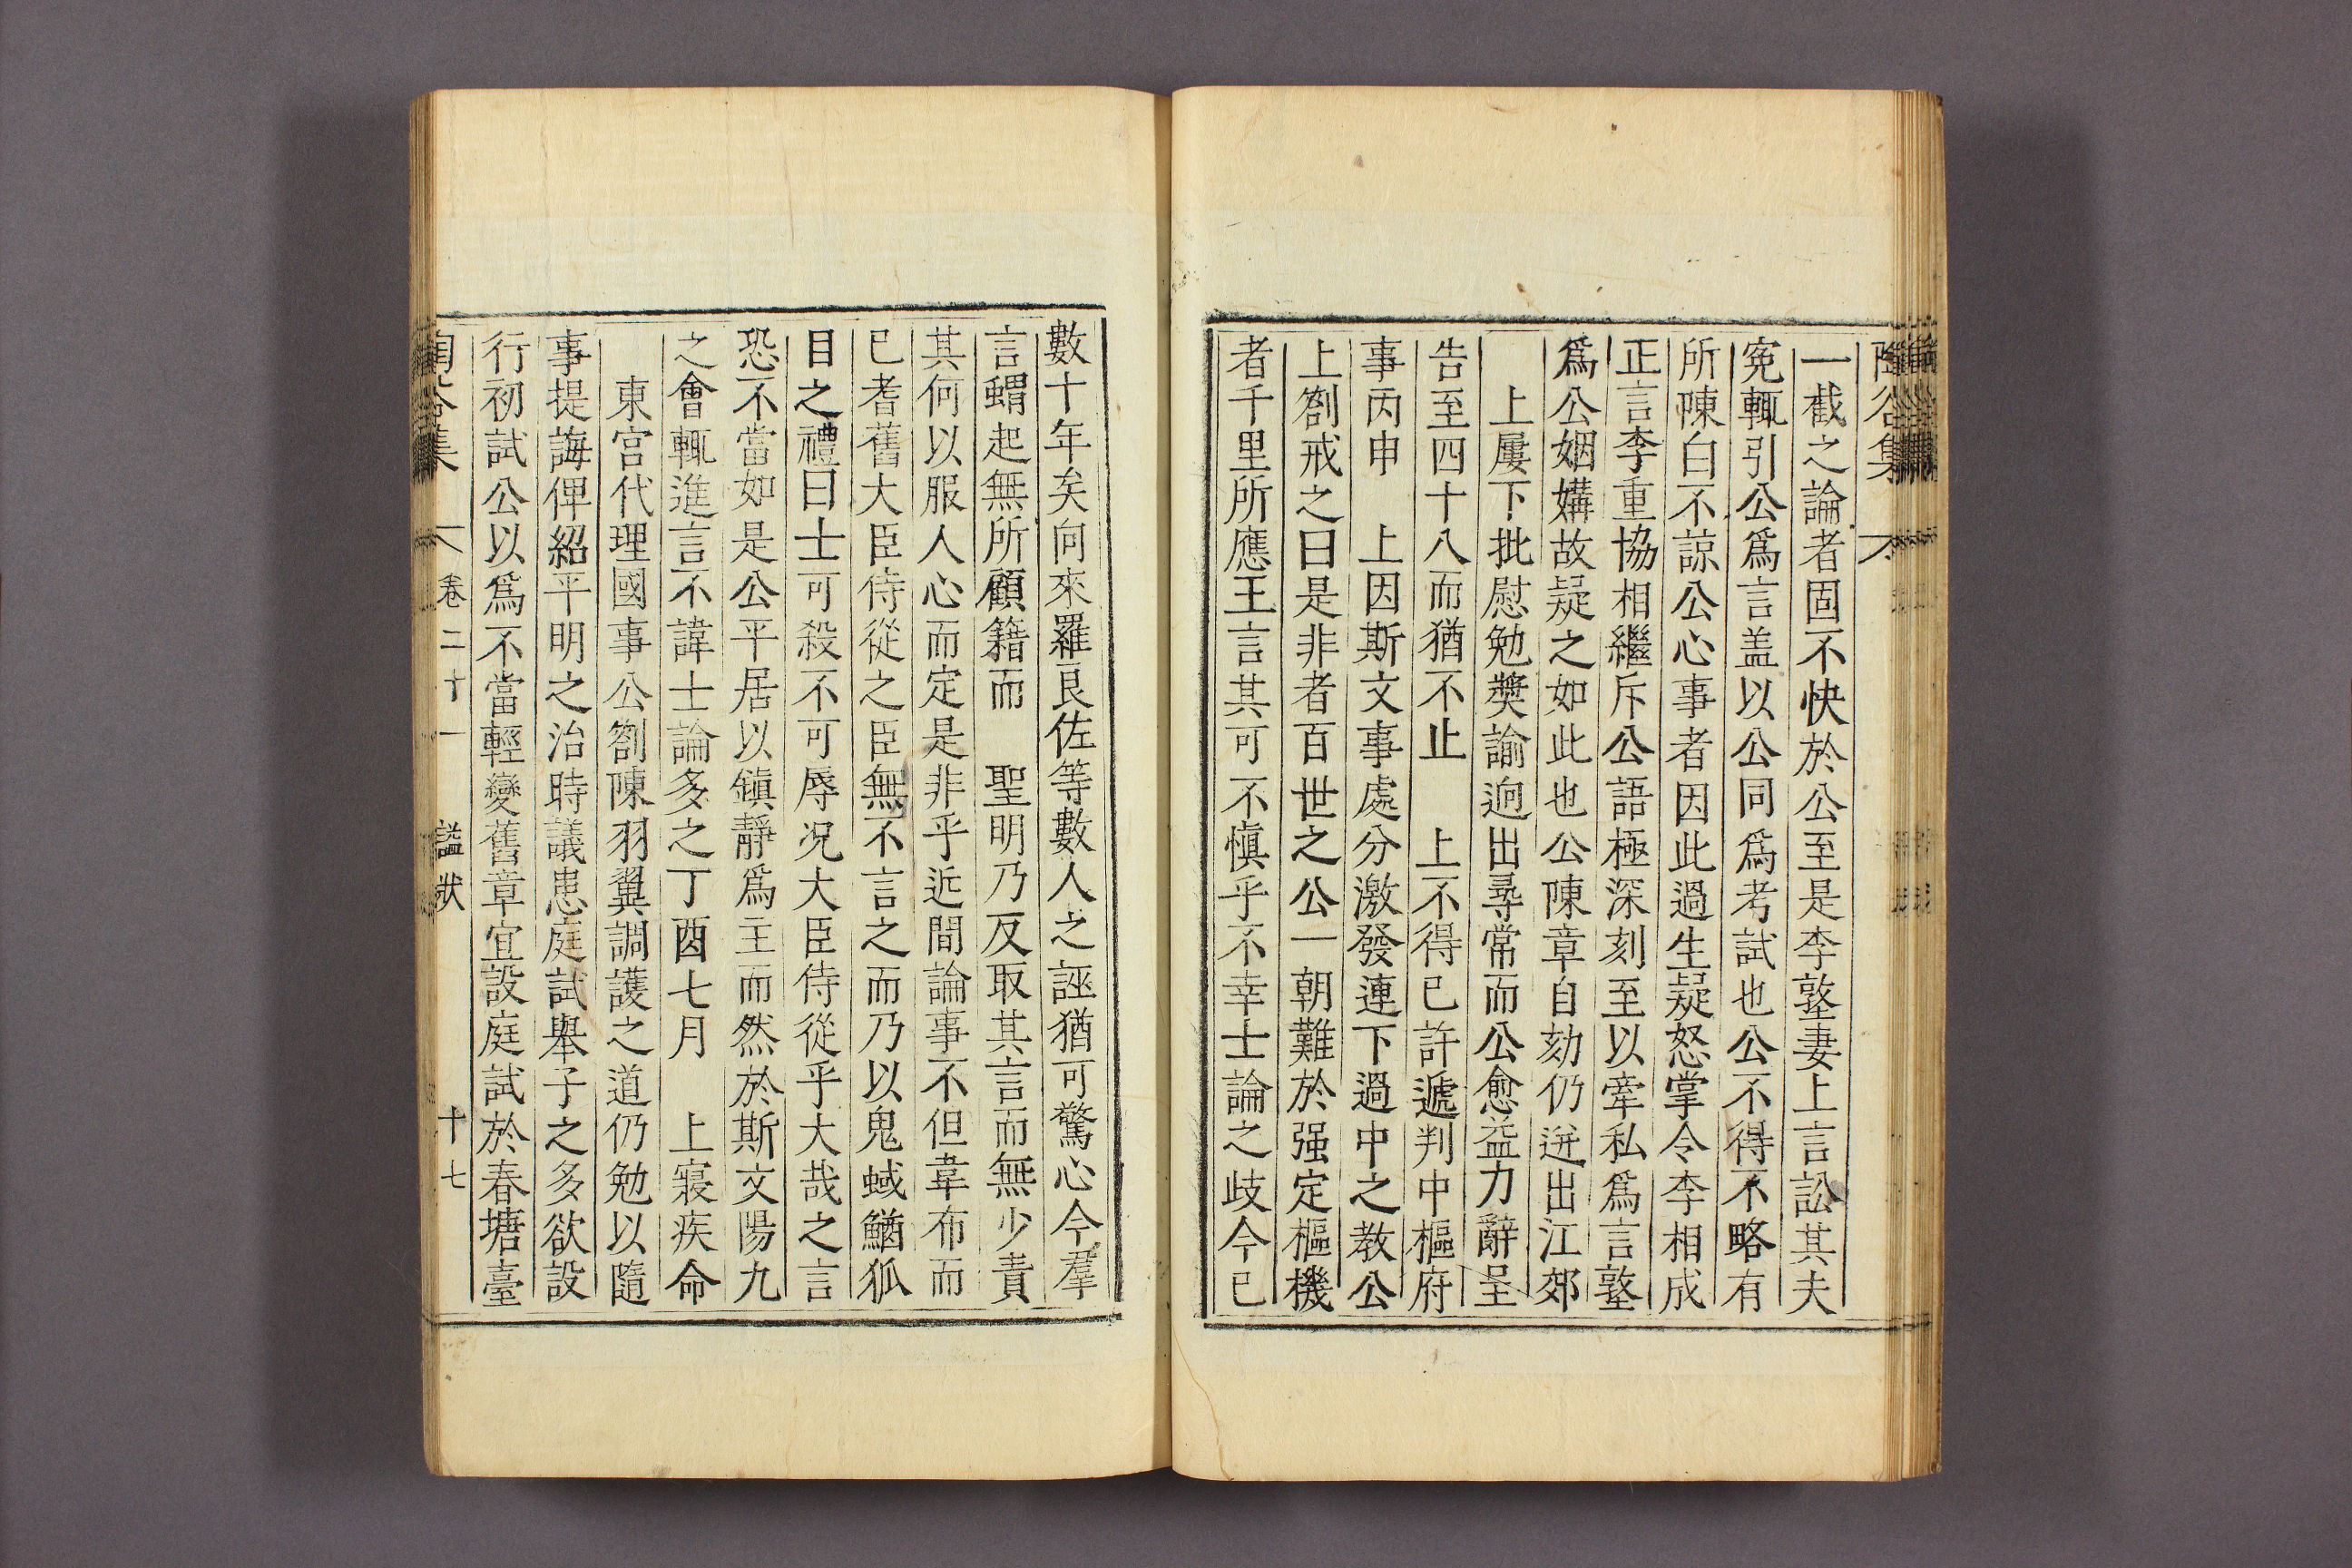 陶谷集
一截之論者固不快於公至是李墪妻上言訟其夫
寃輒引公爲言盖以公同爲考試也公不得不略有
所陳白不諒公心事者因此過生疑怒掌令李相成
正言李重協相繼斥公語極深刻至以牽私爲言墪
爲公姻媾故疑之如此也公陳章自劾仍迸出江郊
上屢下批慰勉奬諭逈出尋常而公愈益力辭呈
告至四十八而猶不止 上不得已許遞判中樞府
事丙申 上因斯文事處分激發連下過中之敎公
上劄戒之曰是非者百世之公一朝難於强定樞機
者千里所應王言其可不愼乎不幸士論之歧今已
數十年矣向來羅良佐等數人之誣猶可驚心今羣
言蝟起無所顧籍而 聖明乃反取其言而無少責
其何以服人心而定是非乎近間論事不但韋布而
已耆舊大臣侍從之臣無不言之而乃以鬼蜮鰌狐
目之禮曰士可殺不可辱况大臣侍從乎大哉之言
恐不當如是公平居以鎭靜爲主而然於斯文陽九
之會輒進言不諱士論多之丁酉七月 上寢疾命
東宮代理國事公劄陳羽翼調護之道仍勉以隨
事提誨俾紹平明之治時議患庭試擧子之多欲設
行初試公以爲不當輕變舊章宜設庭試於春塘臺
陶谷集 卷二十一 諡狀 十七